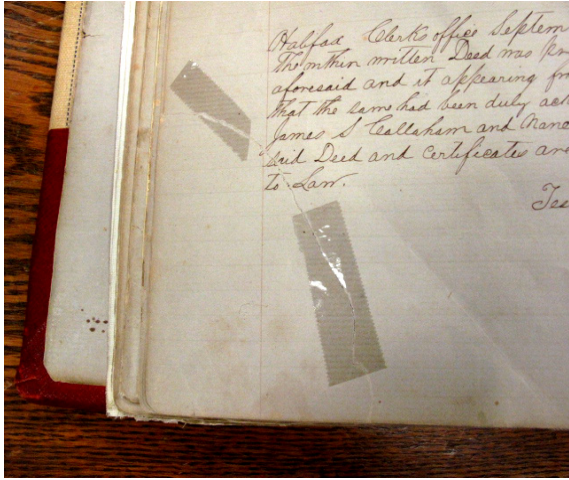 Halifax Clerks office Septem
The within written Deed was
aforesaid and it appearing
that the same had been duly
James S Callaham and
said Deed and Certificates are
to Law.
Tes